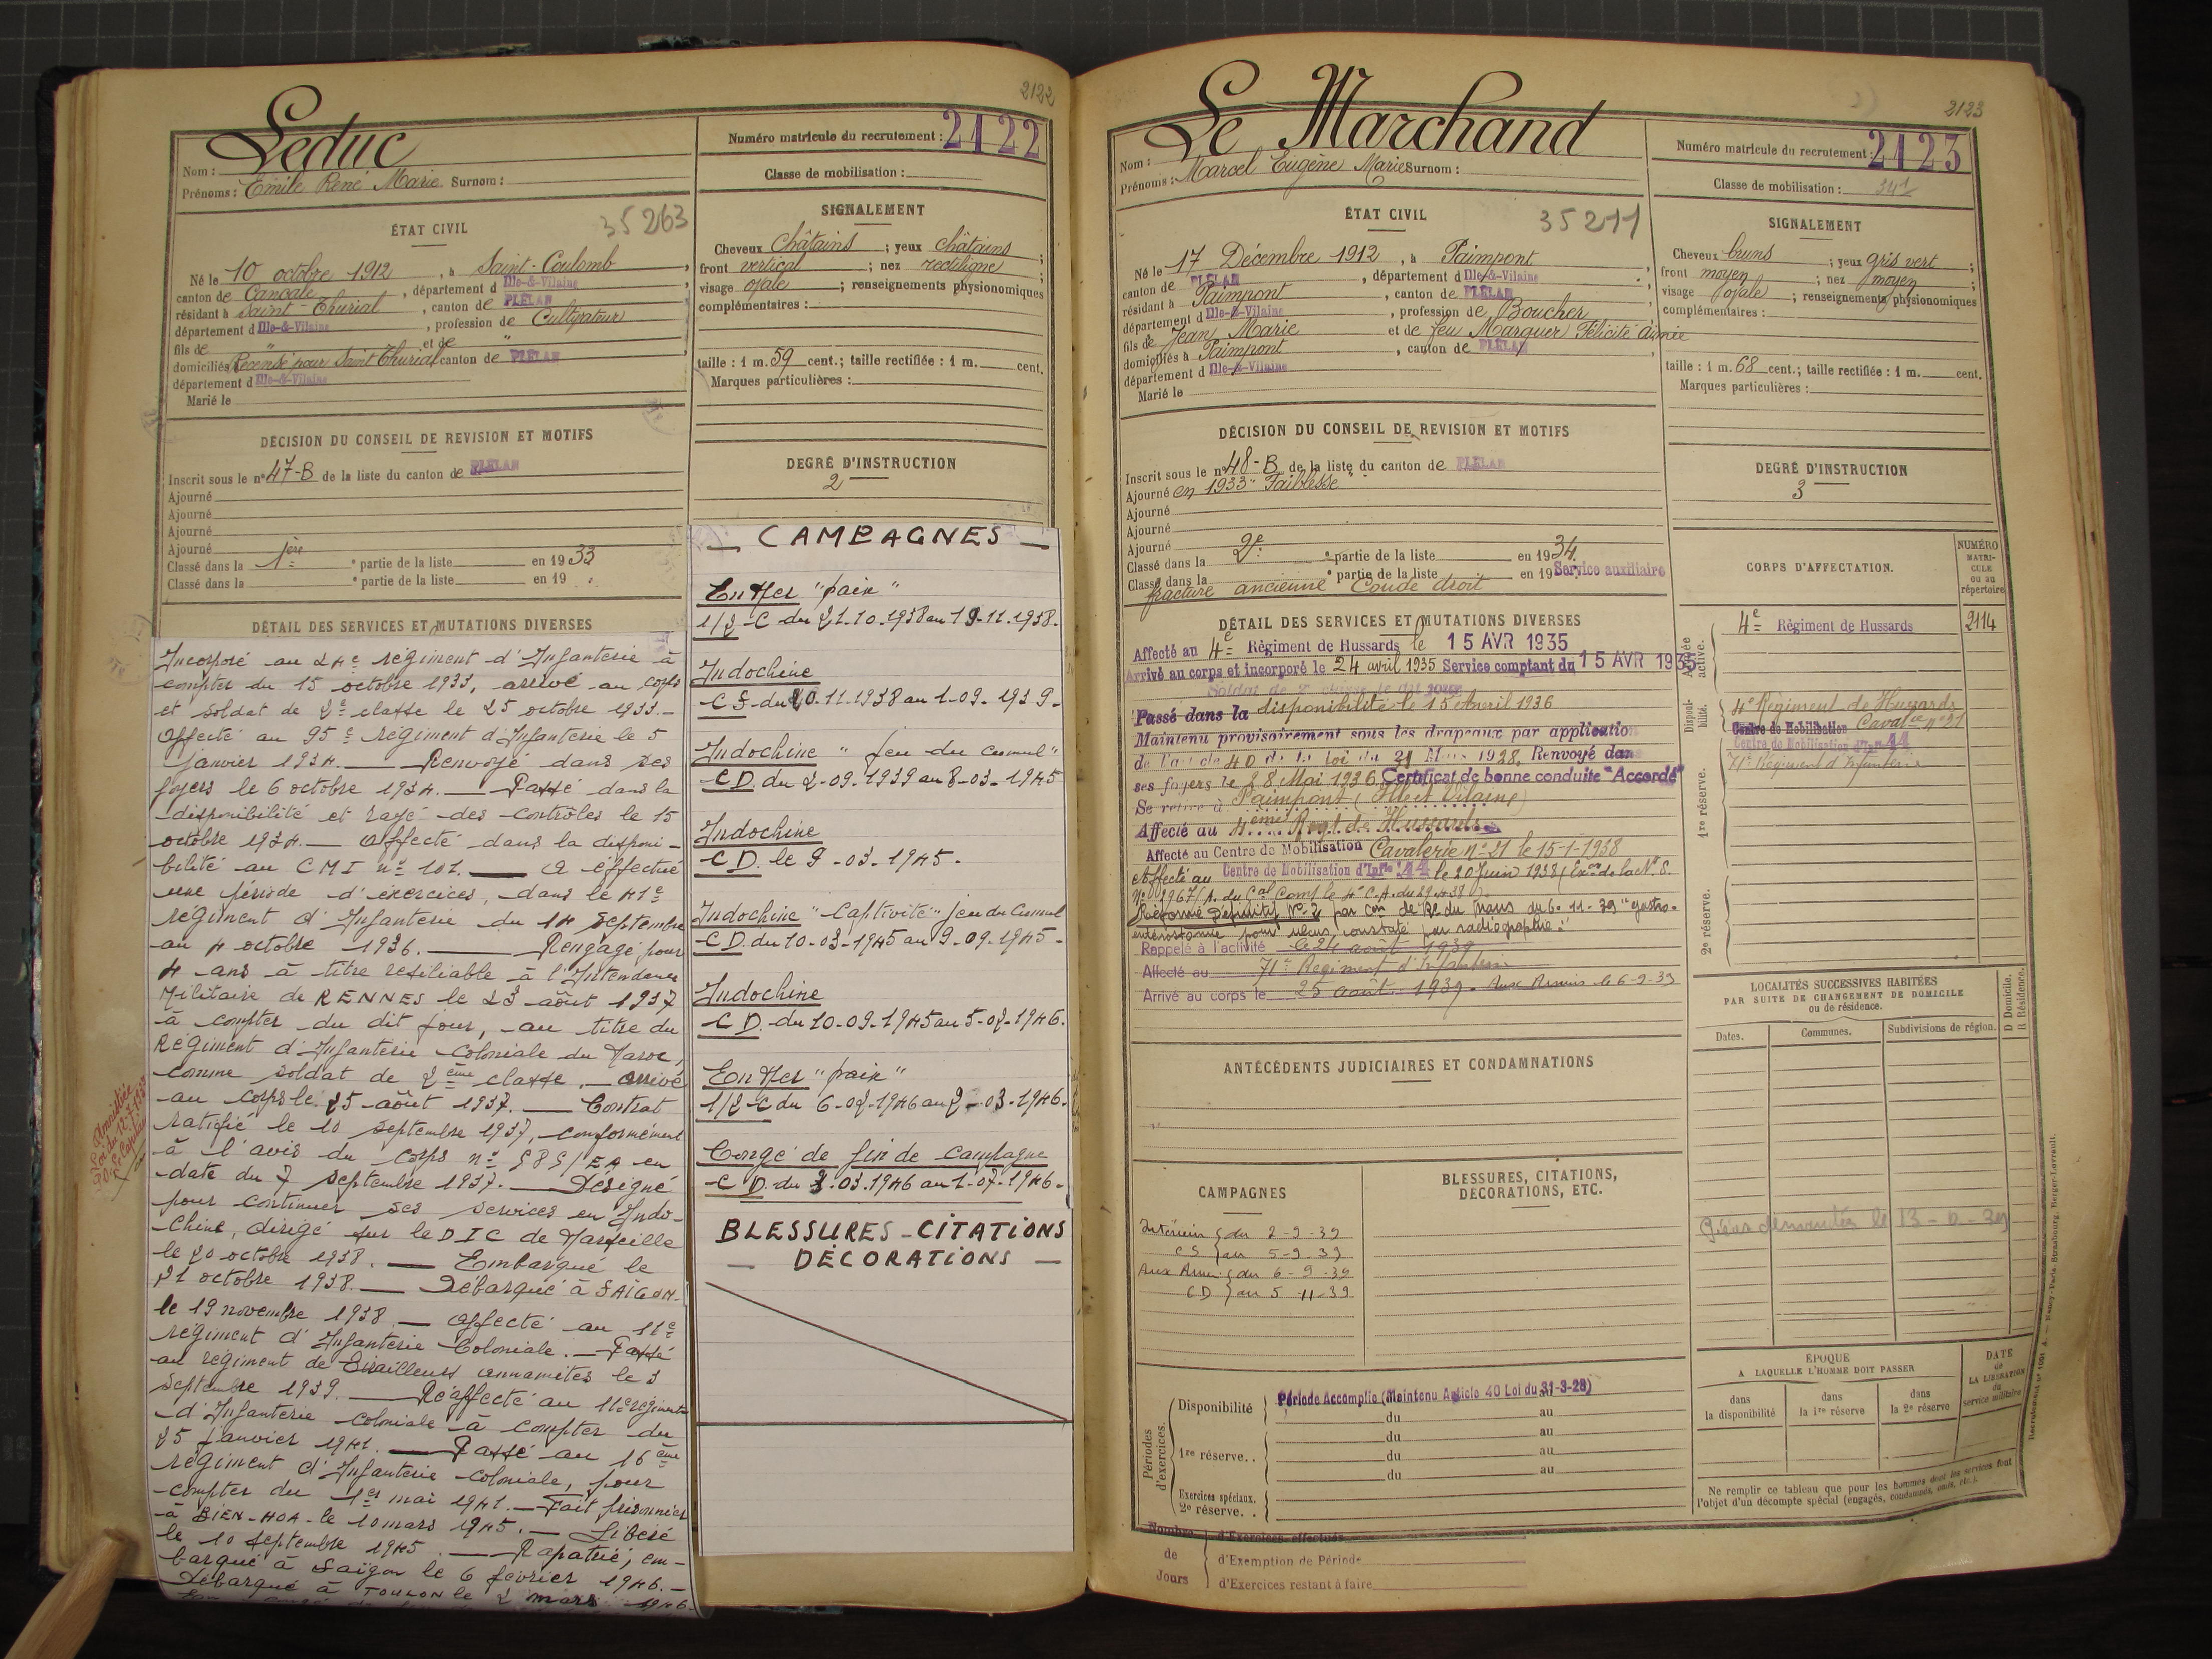 2122
Leduc
Nom :
Prénoms : Emile René Marie Surnom :
Numéro matricule du recrutement : 2122
Classe de mobilisation :
ÉTAT CIVIL
35263
Né le 10 octobre 1912, à Saint-Coulomb,
canton de Cancale, département d Ille-&-Vilaine,
résidant à Saint-Thurial, canton de PLÉLAN,
département d Ille-&-Vilaine, profession de Cultivateur
fils de " et de "
domiciliés Recensé pour Saint Thurial canton de PLÉLAN
département d Ille-&-Vilaine
Marié le
SIGNALEMENT
Cheveux châtains ; yeux châtains ;
front vertical ; nez rectiligne ;
visage ovale ; renseignements physionomiques
complémentaires :
taille : 1 m. 59 cent.; taille rectifiée : 1 m. cent.
Marques particulières :
DÉCISION DU CONSEIL DE REVISION ET MOTIFS
Inscrit sous le n° 47-B de la liste du canton de PLÉLAN
Ajourné
Ajourné
Ajourné
Ajourné
Classé dans la 1ère e partie de la liste en 1933
Classé dans la e partie de la liste en 19 .
DEGRÉ D'INSTRUCTION
2
DÉTAIL DES SERVICES ET MUTATIONS DIVERSES
Incorporé au 24e régiment d'Infanterie à
compter du 15 octobre 1933, arrivé au corps
et soldat de 2e classe le 25 octobre 1933.—
Affecté au 95e régiment d'Infanterie le 5
janvier 1934. — Renvoyé dans ses
foyers le 6 octobre 1934. — Passé dans la
disponibilité et rayé des contrôles le 15
octobre 1934. — Affecté dans la disponi-
bilité au CMI n° 101. — A effectué
une période d'exercices, dans le 41e
régiment d'Infanterie du 14 septembre
au 4 octobre 1936. — Rengagé pour
4 ans à titre résiliable à l'Intendance
Militaire de RENNES le 23 août 1937
à compter du dit jour, au titre du
Régiment d'Infanterie Coloniale du Maroc,
comme soldat de 2ème classe. — arrivé
au corps le 25 août 1937. — Contrat
ratifié le 10 septembre 1937, conformément
à l'avis du corps n° 585/EA en
date du 7 septembre 1937. — Désigné
pour continuer ses services en Indo-
Chine, dirigé sur le DIC de Marseille
le 20 octobre 1938. — Embarqué le
21 octobre 1938. — Débarqué à SAÏGON
le 19 novembre 1938. — affecté au 11e
régiment d'Infanterie Coloniale. — Passé
au régiment de Tirailleurs annamites le 3
septembre 1939. — Réaffecté au 11e régiment
d'Infanterie Coloniale à compter du
25 janvier 1941. — Passé au 16ème
régiment d'Infanterie Coloniale, pour
compter du 1er mai 1941. — Fait prisonnier
à BIEN-HOA le 10 mars 1945. — Libéré
le 10 septembre 1945. — Rapatrié, em-
barqué à Saïgon le 6 février 1946. —
Débarqué à TOULON le 2 mars 1946-
Amnistie
Loi du
Le Capitaine
— CAMPAGNES —
En Mer "paix"
1/2 C du 21-10-1938 au 19-11-1938.
Indochine
C S. du 20-11-1938 au 1-09-1939-
Indochine "Jeu du cumul"
C D. du 2-09-1939 au 8-03-1945
Indochine
C D. le 9-03-1945-
Indochine "Captivité" jeu du Cumul
C D. du 10-03-1945 au 9-09-1945-
Indochine
C D. du 10-09-1945 au 5-02-1946.
En Mer "paix"
1/2 C du 6-02-1946 au 2-03-1946.
Congé de fin de campagne
C D. du 3-03-1946 au 1-07-1946-
BLESSURES-CITATIONS
— DÉCORATIONS —
2123
Le Marchand
Nom :
Prénoms : Marcel Eugène Marie Surnom :
Numéro matricule du recrutement : 2123
Classe de mobilisation : 341
ÉTAT CIVIL
35211
Né le 17 Décembre 1912, à Paimpont,
canton de PLÉLAN, département d Ille-&-Vilaine,
résidant à Paimpont, canton de PLÉLAN,
département d Ille-&-Vilaine, profession de Boucher
fils de Jean Marie et de feu Marquer Félicité Aimée
domiciliés à Paimpont, canton de PLÉLAN
département d Ille-&-Vilaine
Marié le
SIGNALEMENT
Cheveux bruns ; yeux gris vert ;
front moyen ; nez moyen ;
visage ovale ; renseignements physionomiques
complémentaires :
taille : 1 m. 68 cent.; taille rectifiée : 1 m. cent.
Marques particulières :
DÉCISION DU CONSEIL DE REVISION ET MOTIFS
Inscrit sous le n° 48-B de la liste du canton de PLÉLAN
Ajourné en 1933 "Faiblesse"
Ajourné
Ajourné
Ajourné
Classé dans la 2e e partie de la liste en 1934.
Classé dans la e partie de la liste en 19 Service auxiliaire
fracture ancienne Coude droit
DEGRÉ D'INSTRUCTION
3
CORPS D'AFFECTATION.
NUMÉRO
MATRI-
CULE
ou au
répertoire
Armée active.
4e Régiment de Hussards 2114
Disponi-
bilité.
4e Régiment de Hussards
Centre de Mobilisation Cavalie n°21
Centre de Mobilisation d'Infie 44
71e Régiment d'Infanterie
1re réserve.
2e réserve.
DÉTAIL DES SERVICES ET MUTATIONS DIVERSES
Affecté au 4e Régiment de Hussards le 15 AVR 1935
Arrivé au corps et incorporé le 24 avril 1935 Service comptant du 15 AVR 1935
Soldat de 2e classe le dit jour
Passé dans la disponibilité le 15 Avril 1936
Maintenu provisoirement sous les drapeaux par application
de l'art de 40 de la loi du 31 Mars 1928. Renvoyé dans
ses foyers le 28 Mai 1936 Certificat de bonne conduite "Accordé"
Se retire à Paimpont (Ille et Vilaine)
Affecté au 4ème Regt de Hussards
Affecté au Centre de Mobilisation Cavalerie n°21 le 15-1-1938
Affecté au Centre de Mobilisation d'Infie 44 le 20 Juin 1938 (Exon de la N. S.
N° 02967/A. du Cal Comt le 4e C.A. du 29-4-38).
Réformé Définitif N°2 par Con de Rf du Mans du 6-11-39 "gastro-
entérostomie pour ulcus constaté par radiographie."
Rappelé à l'activité le 24 août 1939
Affecté au 71e Régiment d'Infanterie
Arrivé au corps le 25 août 1939. Aux Armées le 6-9-39
LOCALITÉS SUCCESSIVES HABITÉES
PAR SUITE DE CHANGEMENT DE DOMICILE
ou de résidence.
Dates.
Communes.
Subdivisions de région.
D Domicile.
R Résidence.
ANTÉCÉDENTS JUDICIAIRES ET CONDAMNATIONS
CAMPAGNES
Intérieur { du 2-9-39
CS } au 5-9-39
Aux Armées { du 6-9-39
CD } au 5-11-39
BLESSURES, CITATIONS,
DÉCORATIONS, ETC.
Périodes
d'exercices.
Disponibilité
Période Accomplie (Maintenu Article 40 Loi du 31-3-28)
du au
du au
1re réserve. .
du au
du au
Exercices spéciaux.
2e réserve. .
ÉPOQUE
A LAQUELLE L'HOMME DOIT PASSER
dans
la disponibilité
dans
la 1re réserve
dans
la 2e réserve
DATE
de
LA LIBÉRATION
du
service militaire
Ne remplir ce tableau que pour les hommes dont les services font
l'objet d'un décompte spécial (engagés, condamnés, omis, etc.).
Nombre
de
Jours
d'Exercices effectués
d'Exemption de Période
d'Exercices restant à faire